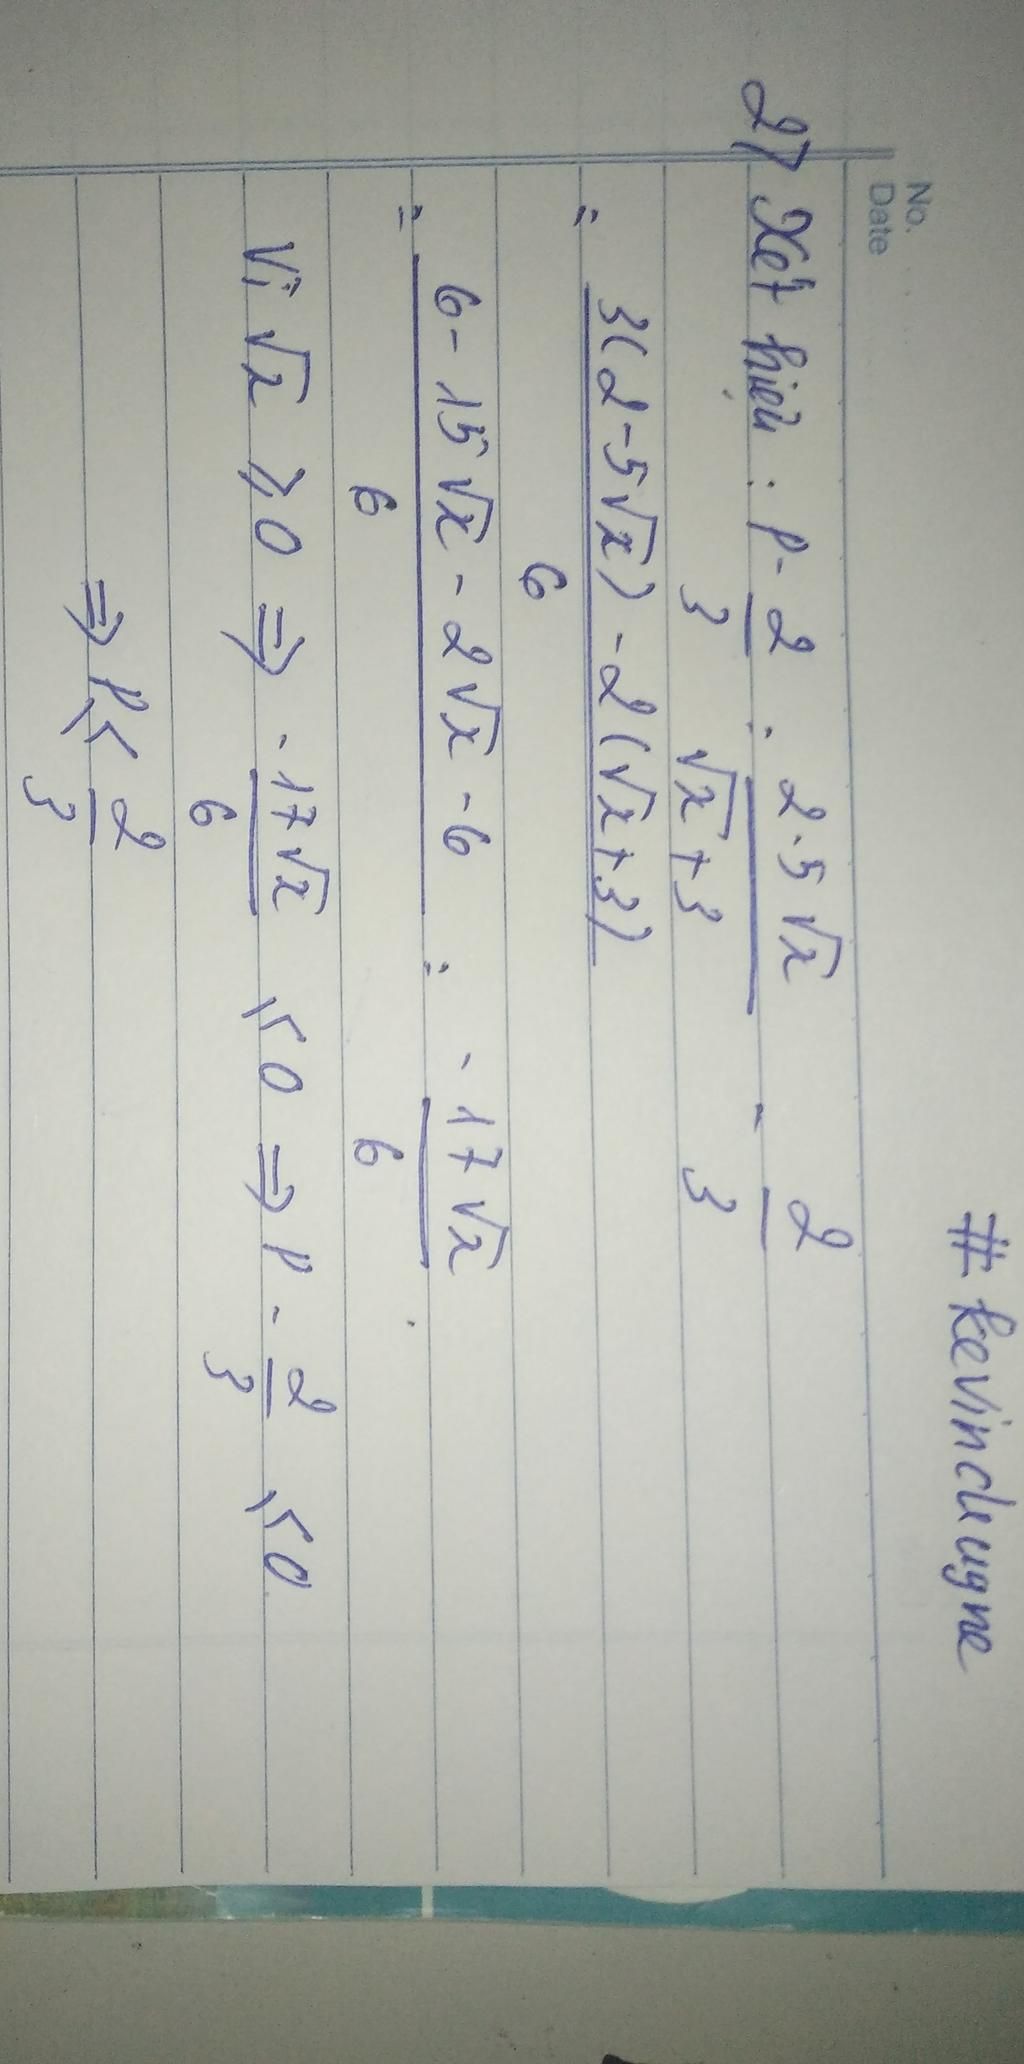 #kevincleugne
No.
Date
2) Xét hiệu : P - 2/3 = 2-5√x/√x+3 - 2/3
= 3(2-5√x) - 2(√x+3)/6
= 6 - 15√x - 2√x - 6/6 = -17√x/6
Vì √x ⩾ 0 ⇒ -17√x/6 ⩽ 0 ⇒ P - 2/3 ⩽ 0
⇒ P ⩽ 2/3